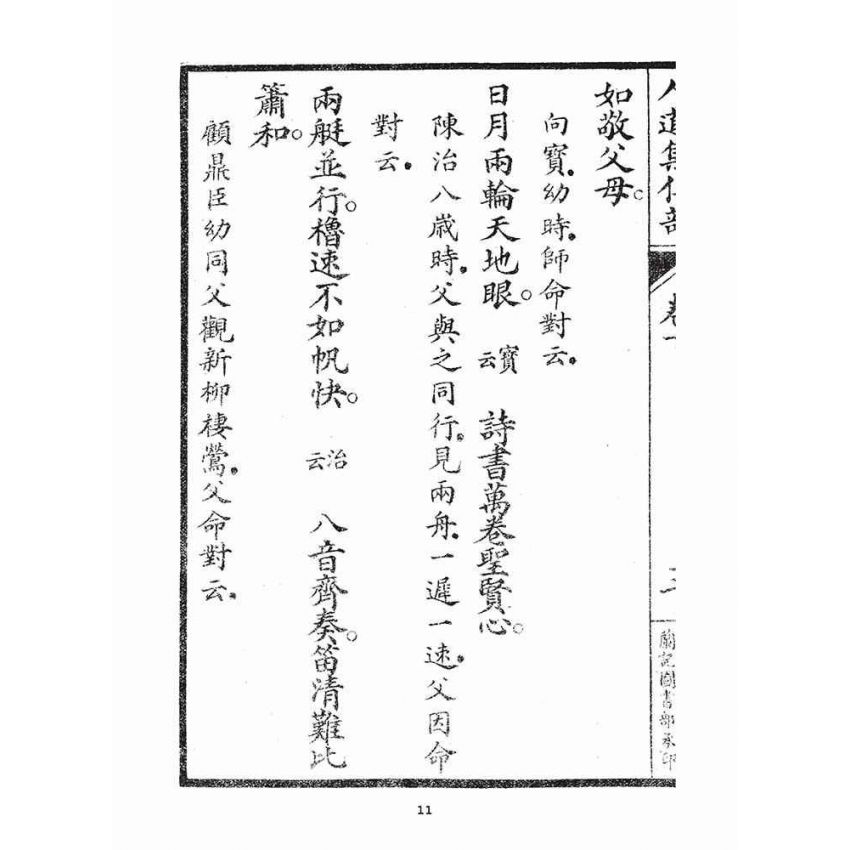 如敬父母。
向寶。幼時。師命對云。
日月兩輪天地眼。寶云 詩書萬卷聖賢心。
陳治八歲時。父與之同行。見兩舟。一遲一速。父因命
對云。
兩艇並行。櫓速不如帆快。治云 八音齊奏。笛清難比
簫和。
顧鼎臣幼同父觀新柳棲鶯。父命對云。
11